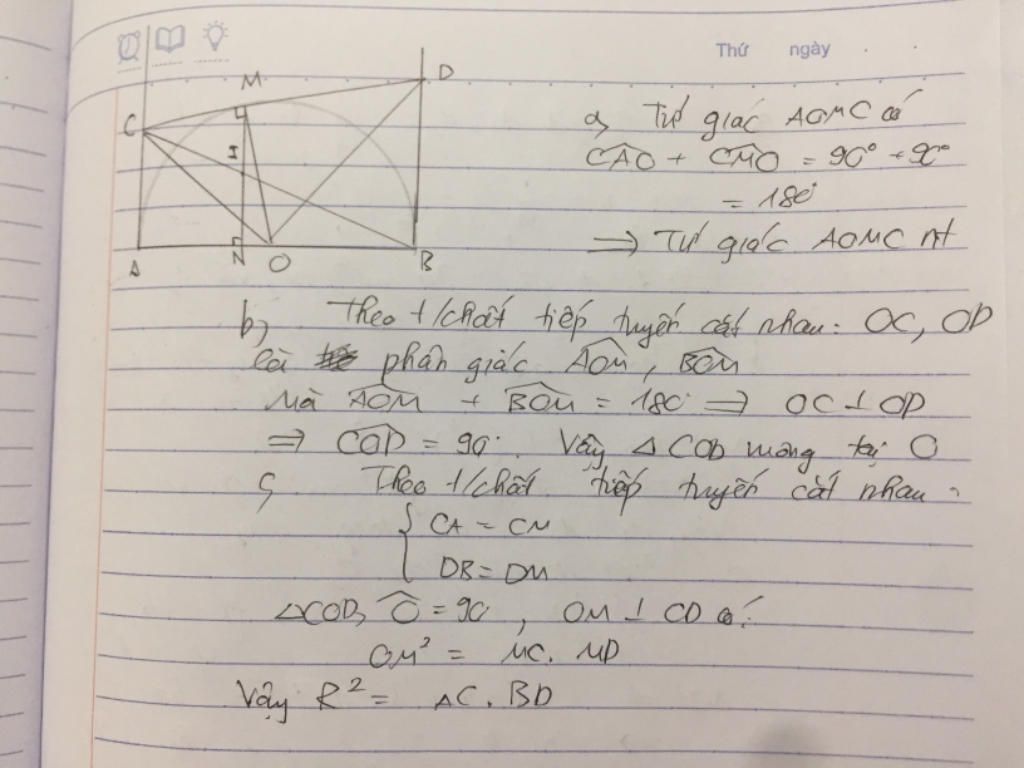 Thứ ngày
M
D
C
I
A
N
O
B
a, Tứ giác AOMC có
CAO + CMO = 90° + 90°
= 180°
=> Tứ giác AOMC nt
b, Theo t/chất tiếp tuyến cắt nhau: OC, OD
là phân giác AOM, BOM
Mà AOM + BOM = 180° => OC ⊥ OD
=> COD = 90°. Vậy △COD vuông tại O
c, Theo t/chất tiếp tuyến cắt nhau:
{ CA = CM
DB = DM
△COD, O = 90°, OM ⊥ CD có:
OM² = MC. MD
Vậy R² = AC. BD